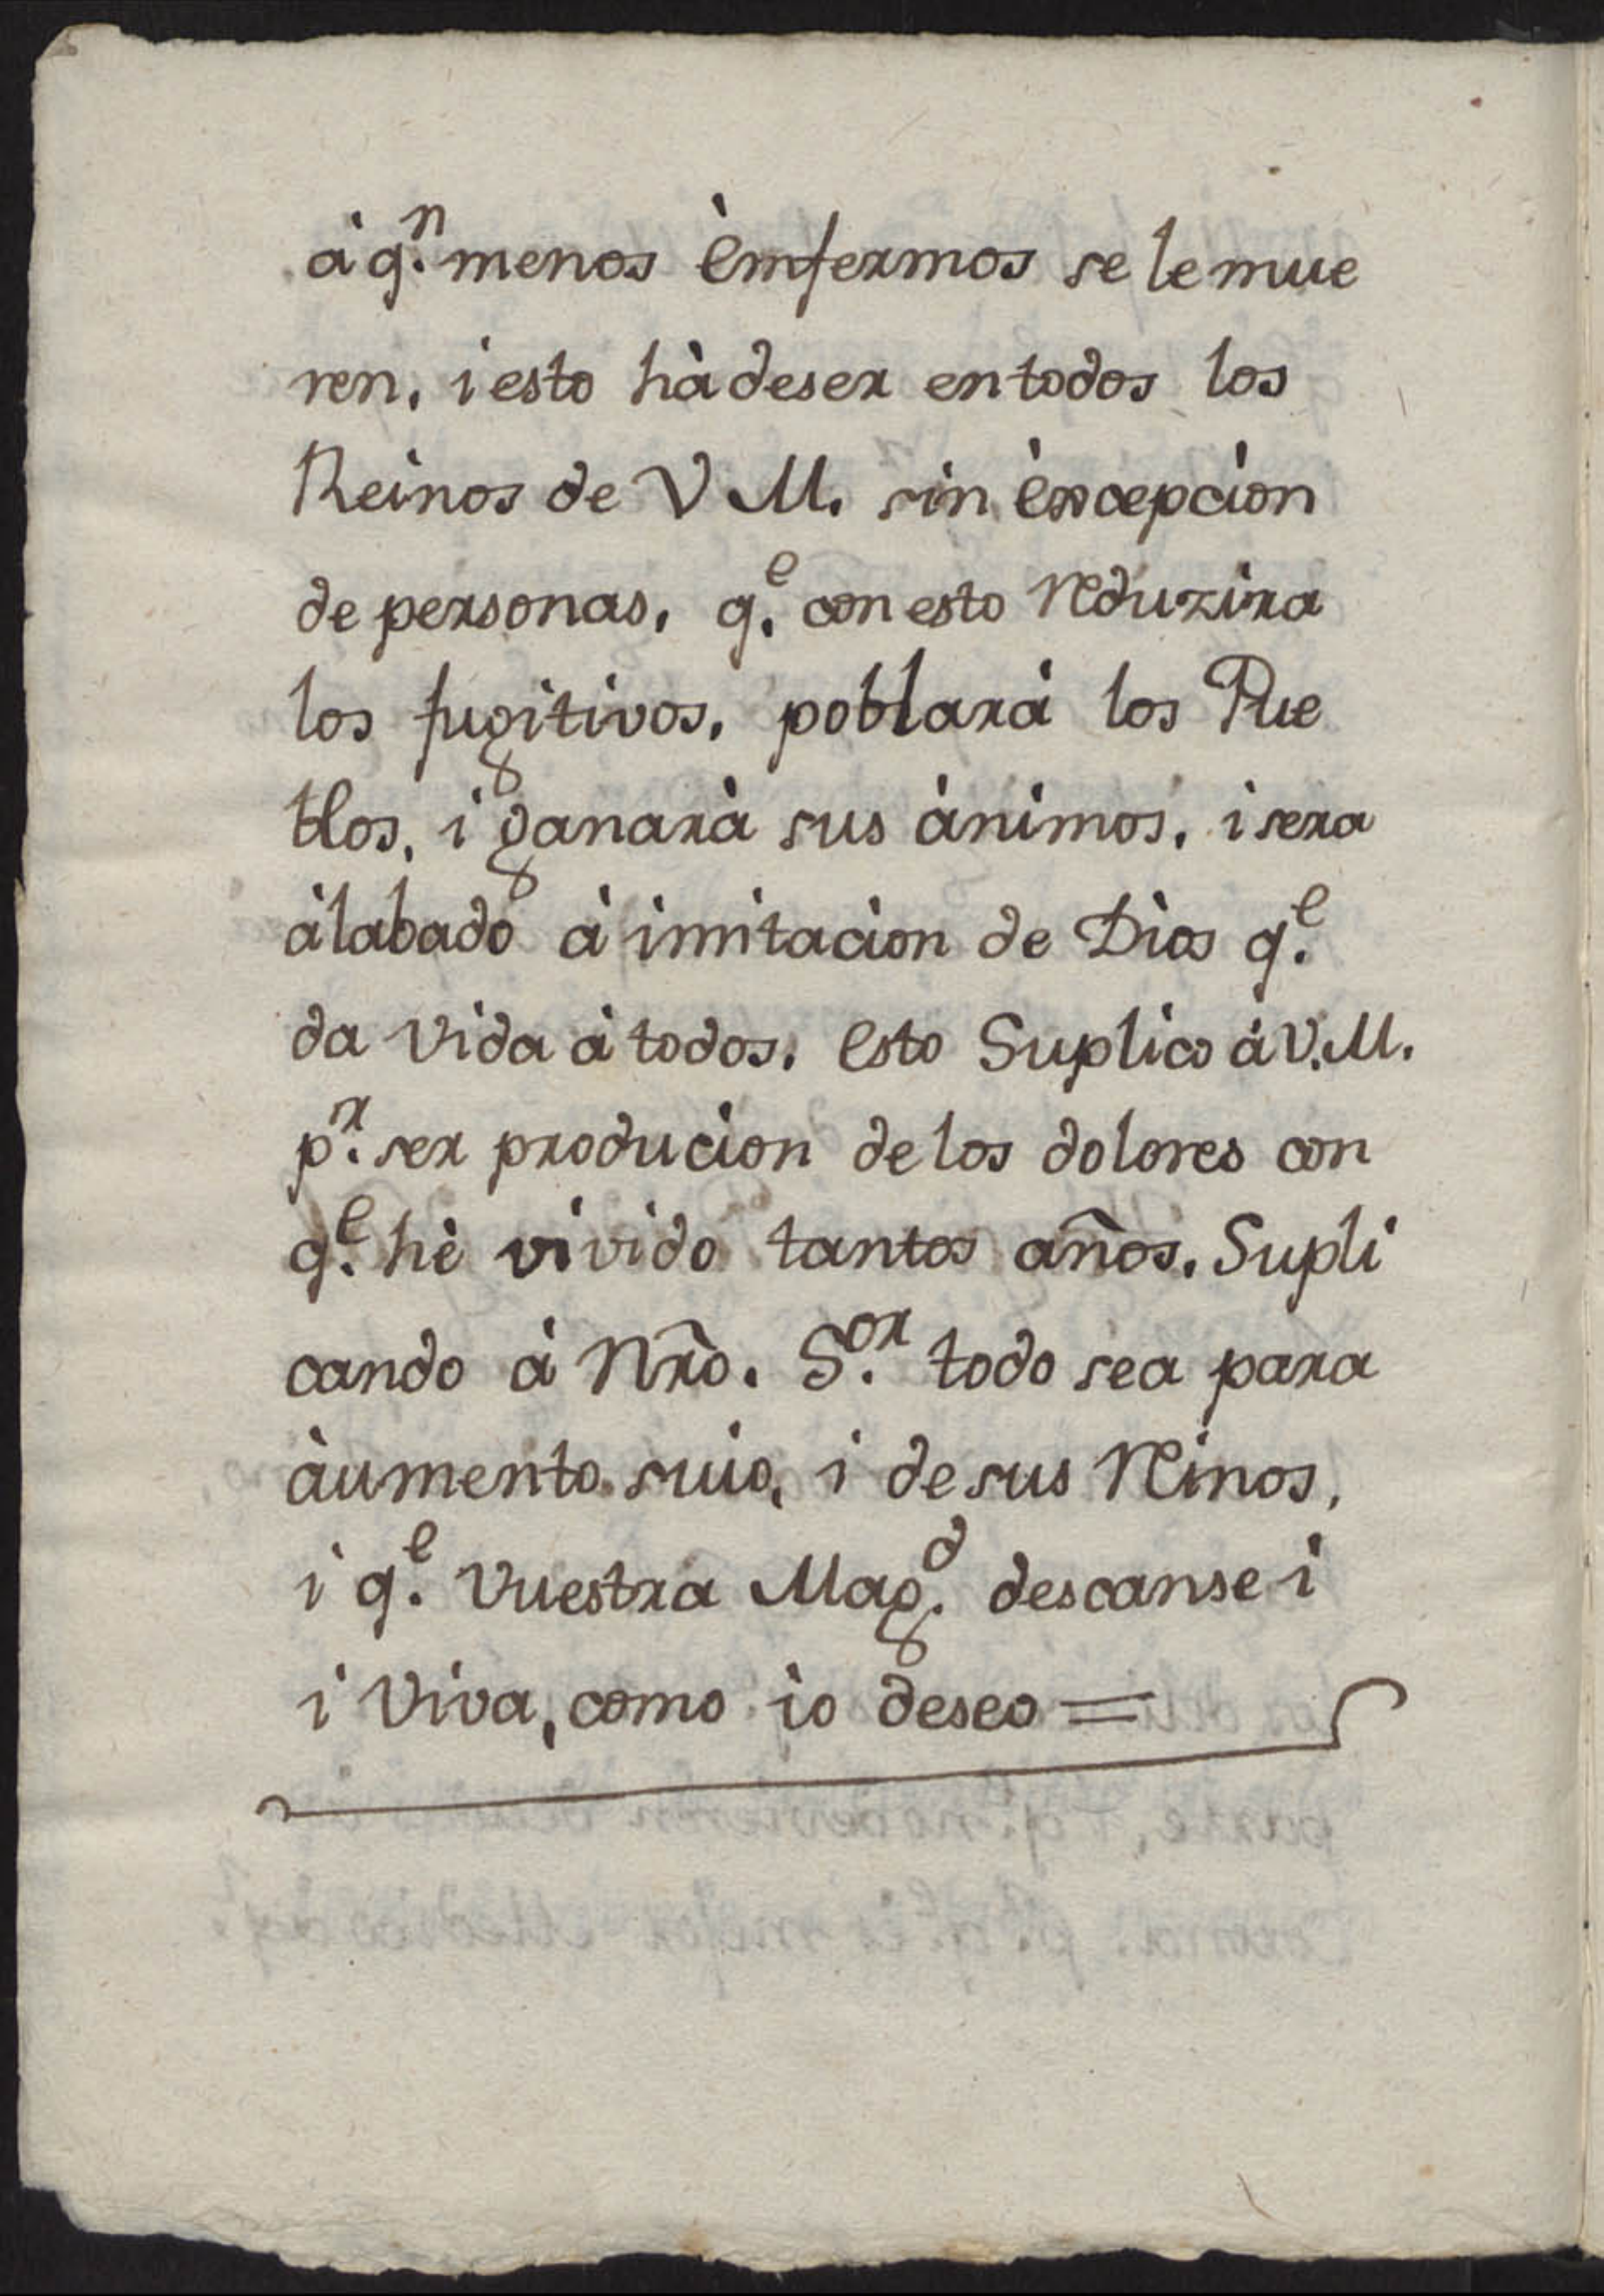 à q.ⁿ menos èmfermos se le mue
ren, i esto hà de ser en todos los
Reinos de V M. sin èxcepcion
de personas, q.ᵉ con esto reduzira
los fugitivos, poblará los Pue
blos, i ganarà sus ànimos, i sera
àlabado à imitacion de Dios q.ᵉ
da Vida à todos. esto Suplico à V. M.
p.ʳ ser producion de los dolores con
q.ᵉ hè vivido tantos años. Supli
cando à Nr̃o. S.ᵒʳ todo sea para
àumento suio, i de sus Reinos,
i q.ᵉ Vuestra Mag.ᵈ descanse i
i Viva, como io deseo =